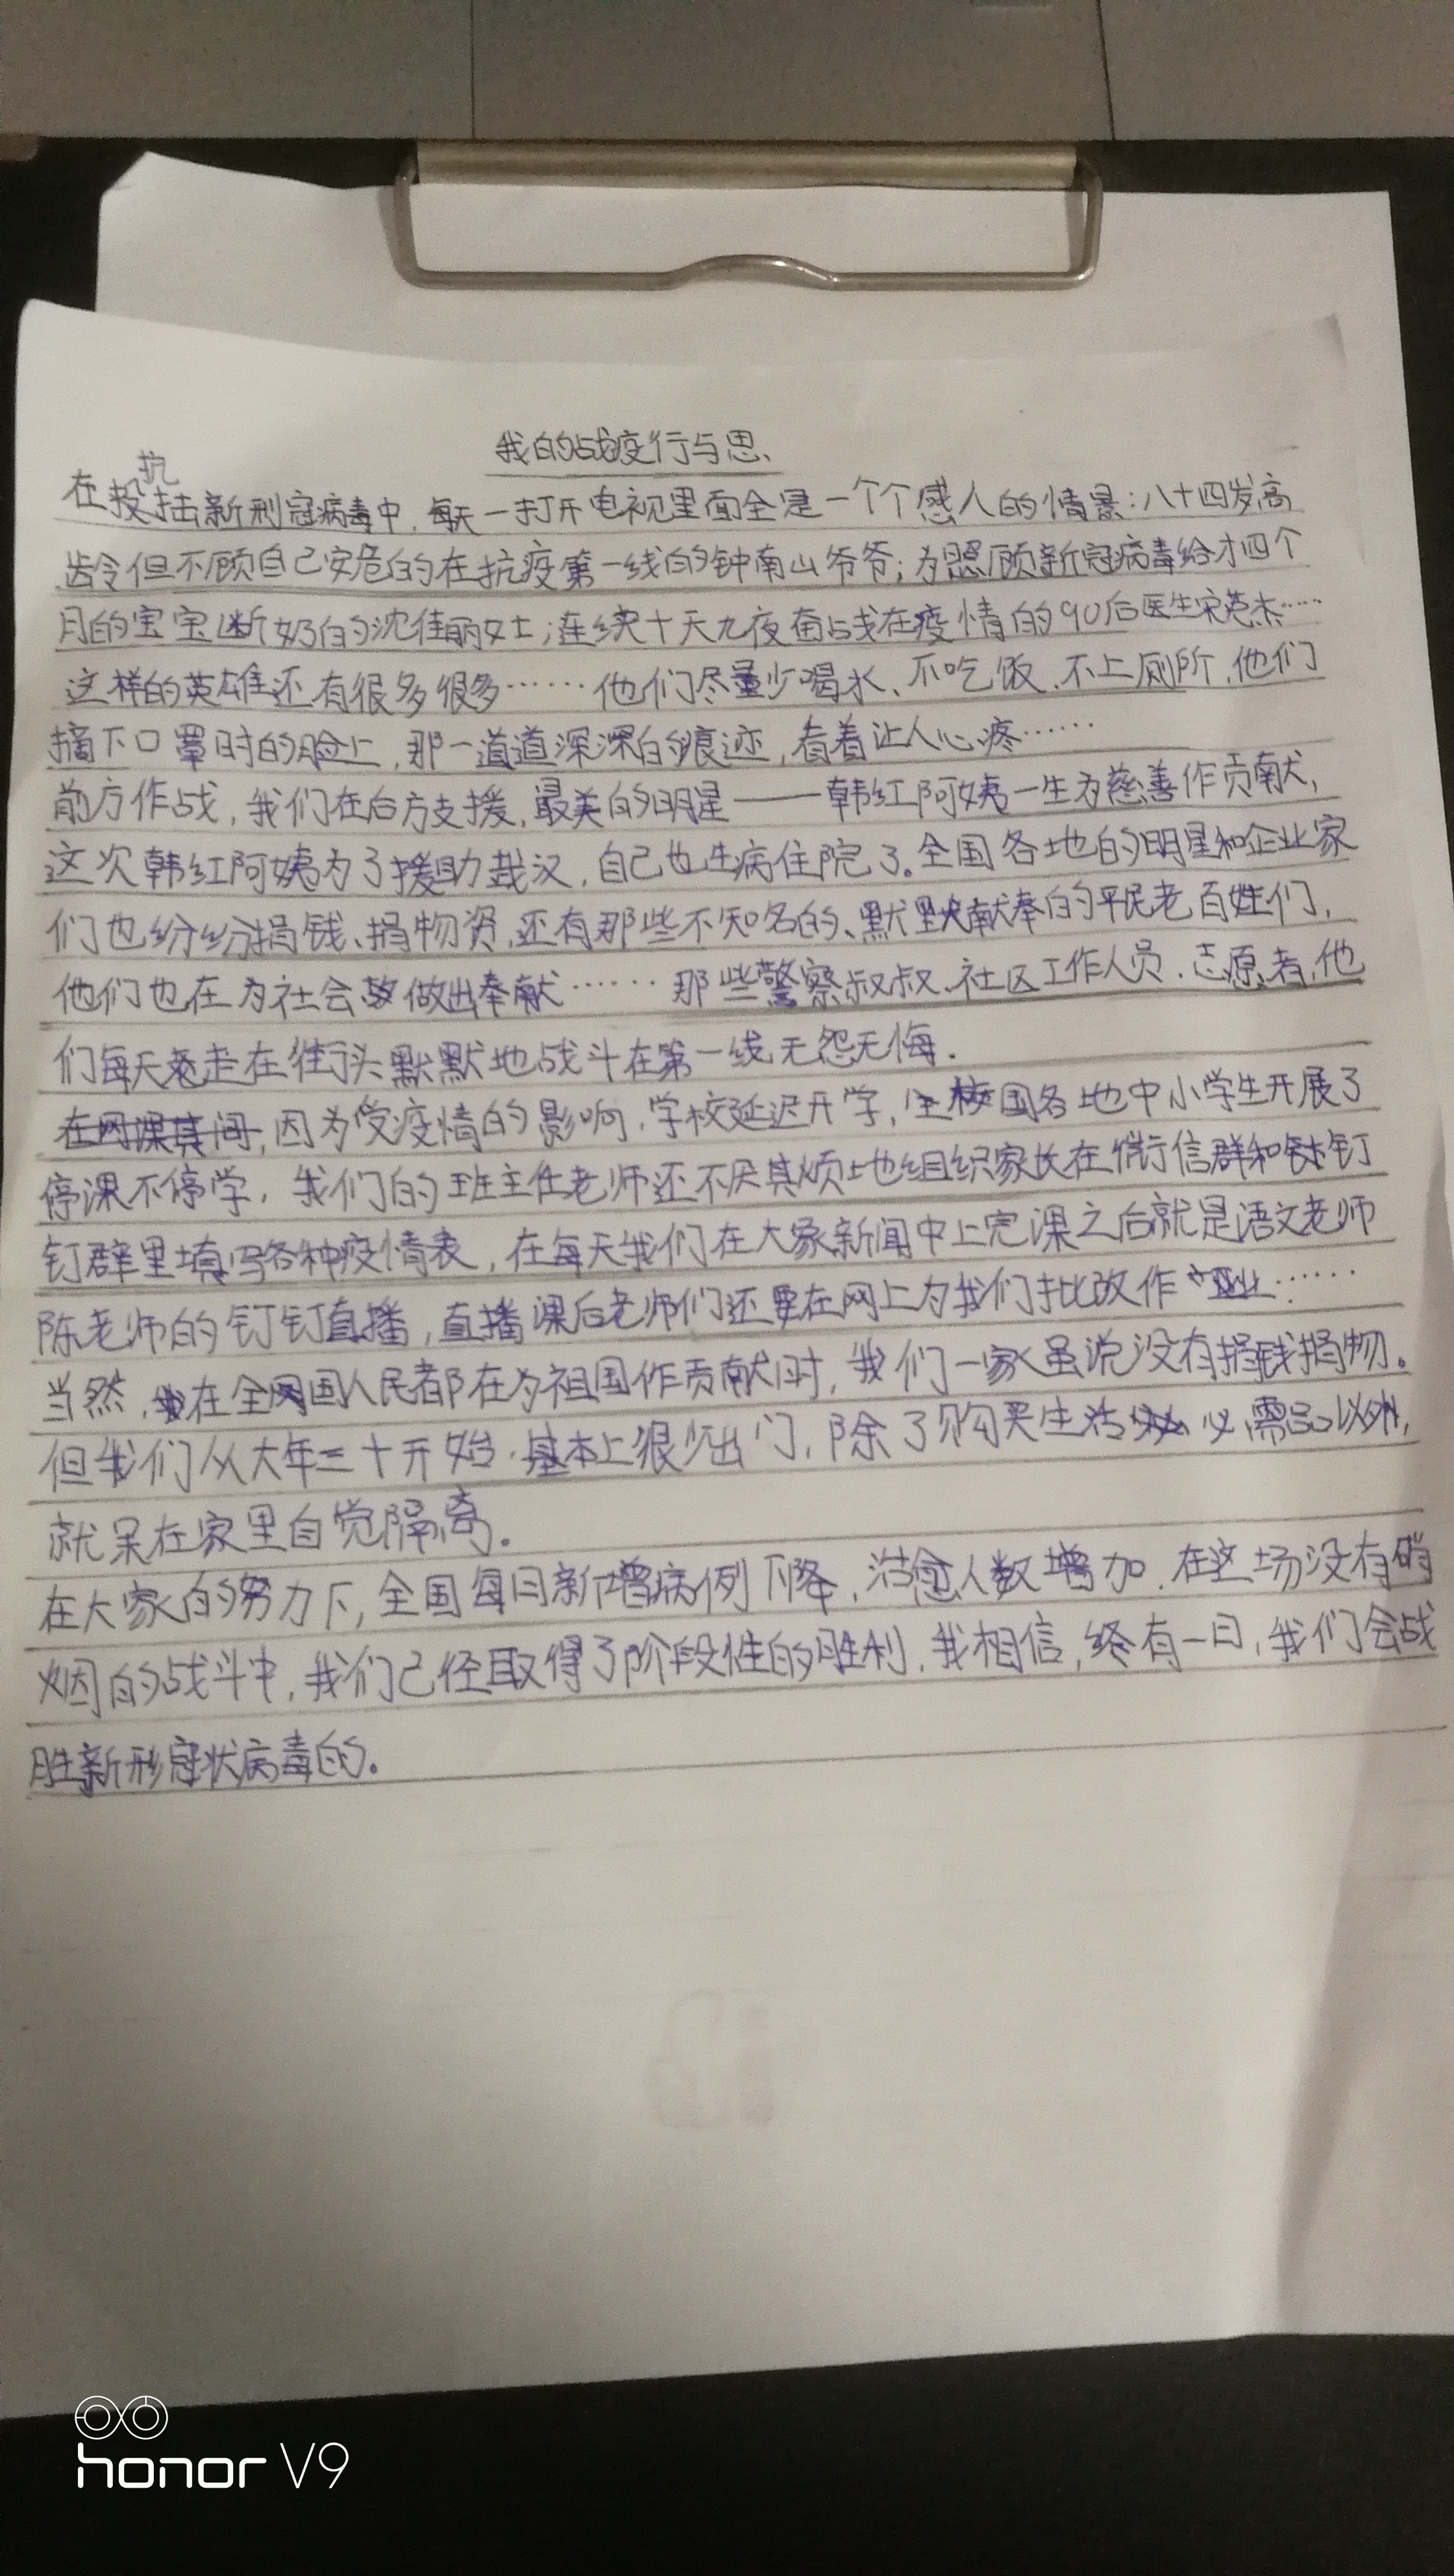 我的战疫行与思
抗
在投击新型冠病毒中,每天一打开电视里面全是一个个感人的情景:八十四岁高
龄但不顾自己安危的在抗疫第一线的钟南山爷爷;为照顾新冠病毒给才四个
月的宝宝断奶的沈佳丽女士;连续十天九夜奋战在疫情的90后医生宋英杰……
这样的英雄还有很多很多……他们尽量少喝水、不吃饭、不上厕所,他们
摘下口罩时的脸上,那一道道深深的痕迹,看着让人心疼……
前方作战,我们在后方支援,最美的明星——韩红阿姨一生为慈善作贡献,
这次韩红阿姨为了援助武汉,自己也生病住院了。全国各地的明星和企业家
们也纷纷捐钱、捐物资,还有那些不知名的、默默献奉的平民老百姓们,
他们也在为社会做出奉献……那些警察叔叔、社区工作人员、志愿者,他
们每天走在街头默默地战斗在第一线无怨无悔.
在网课其间,因为受疫情的影响,学校延迟开学,全国各地中小学生开展了
停课不停学,我们的班主任老师还不厌其烦地组织家长在微信群和钉
钉群里填写各种疫情表,在每天我们在大象新闻中上完课之后就是语文老师
陈老师的钉钉直播,直播课后老师们还要在网上为我们批改作业……
当然,在全国人民都在为祖国作贡献时,我们一家虽说没有捐钱捐物。
但我们从大年三十开始,基本上很少出门,除了购买生活必需品以外,
就呆在家里自觉隔离。
在大家的努力下,全国每日新增病例下降,治愈人数增加,在这场没有硝
烟的战斗中,我们已经取得了阶段性的胜利,我相信,终有一日,我们会战
胜新形冠状病毒的。
honor V9